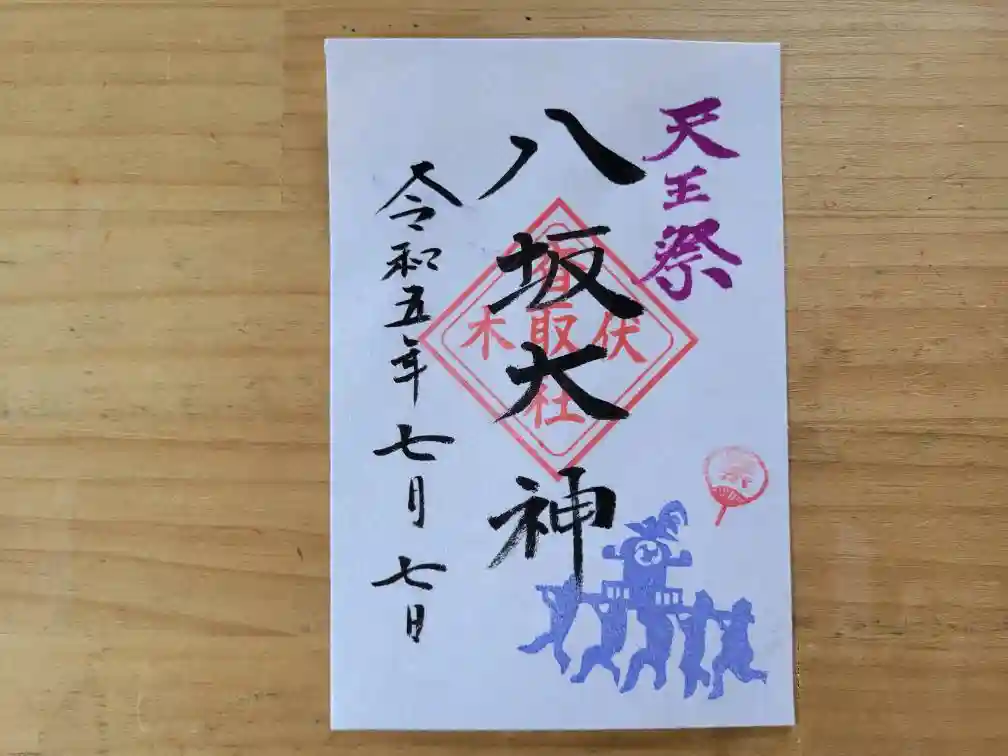 天王祭
八坂大神
伏木
香取社
令和五年七月七日